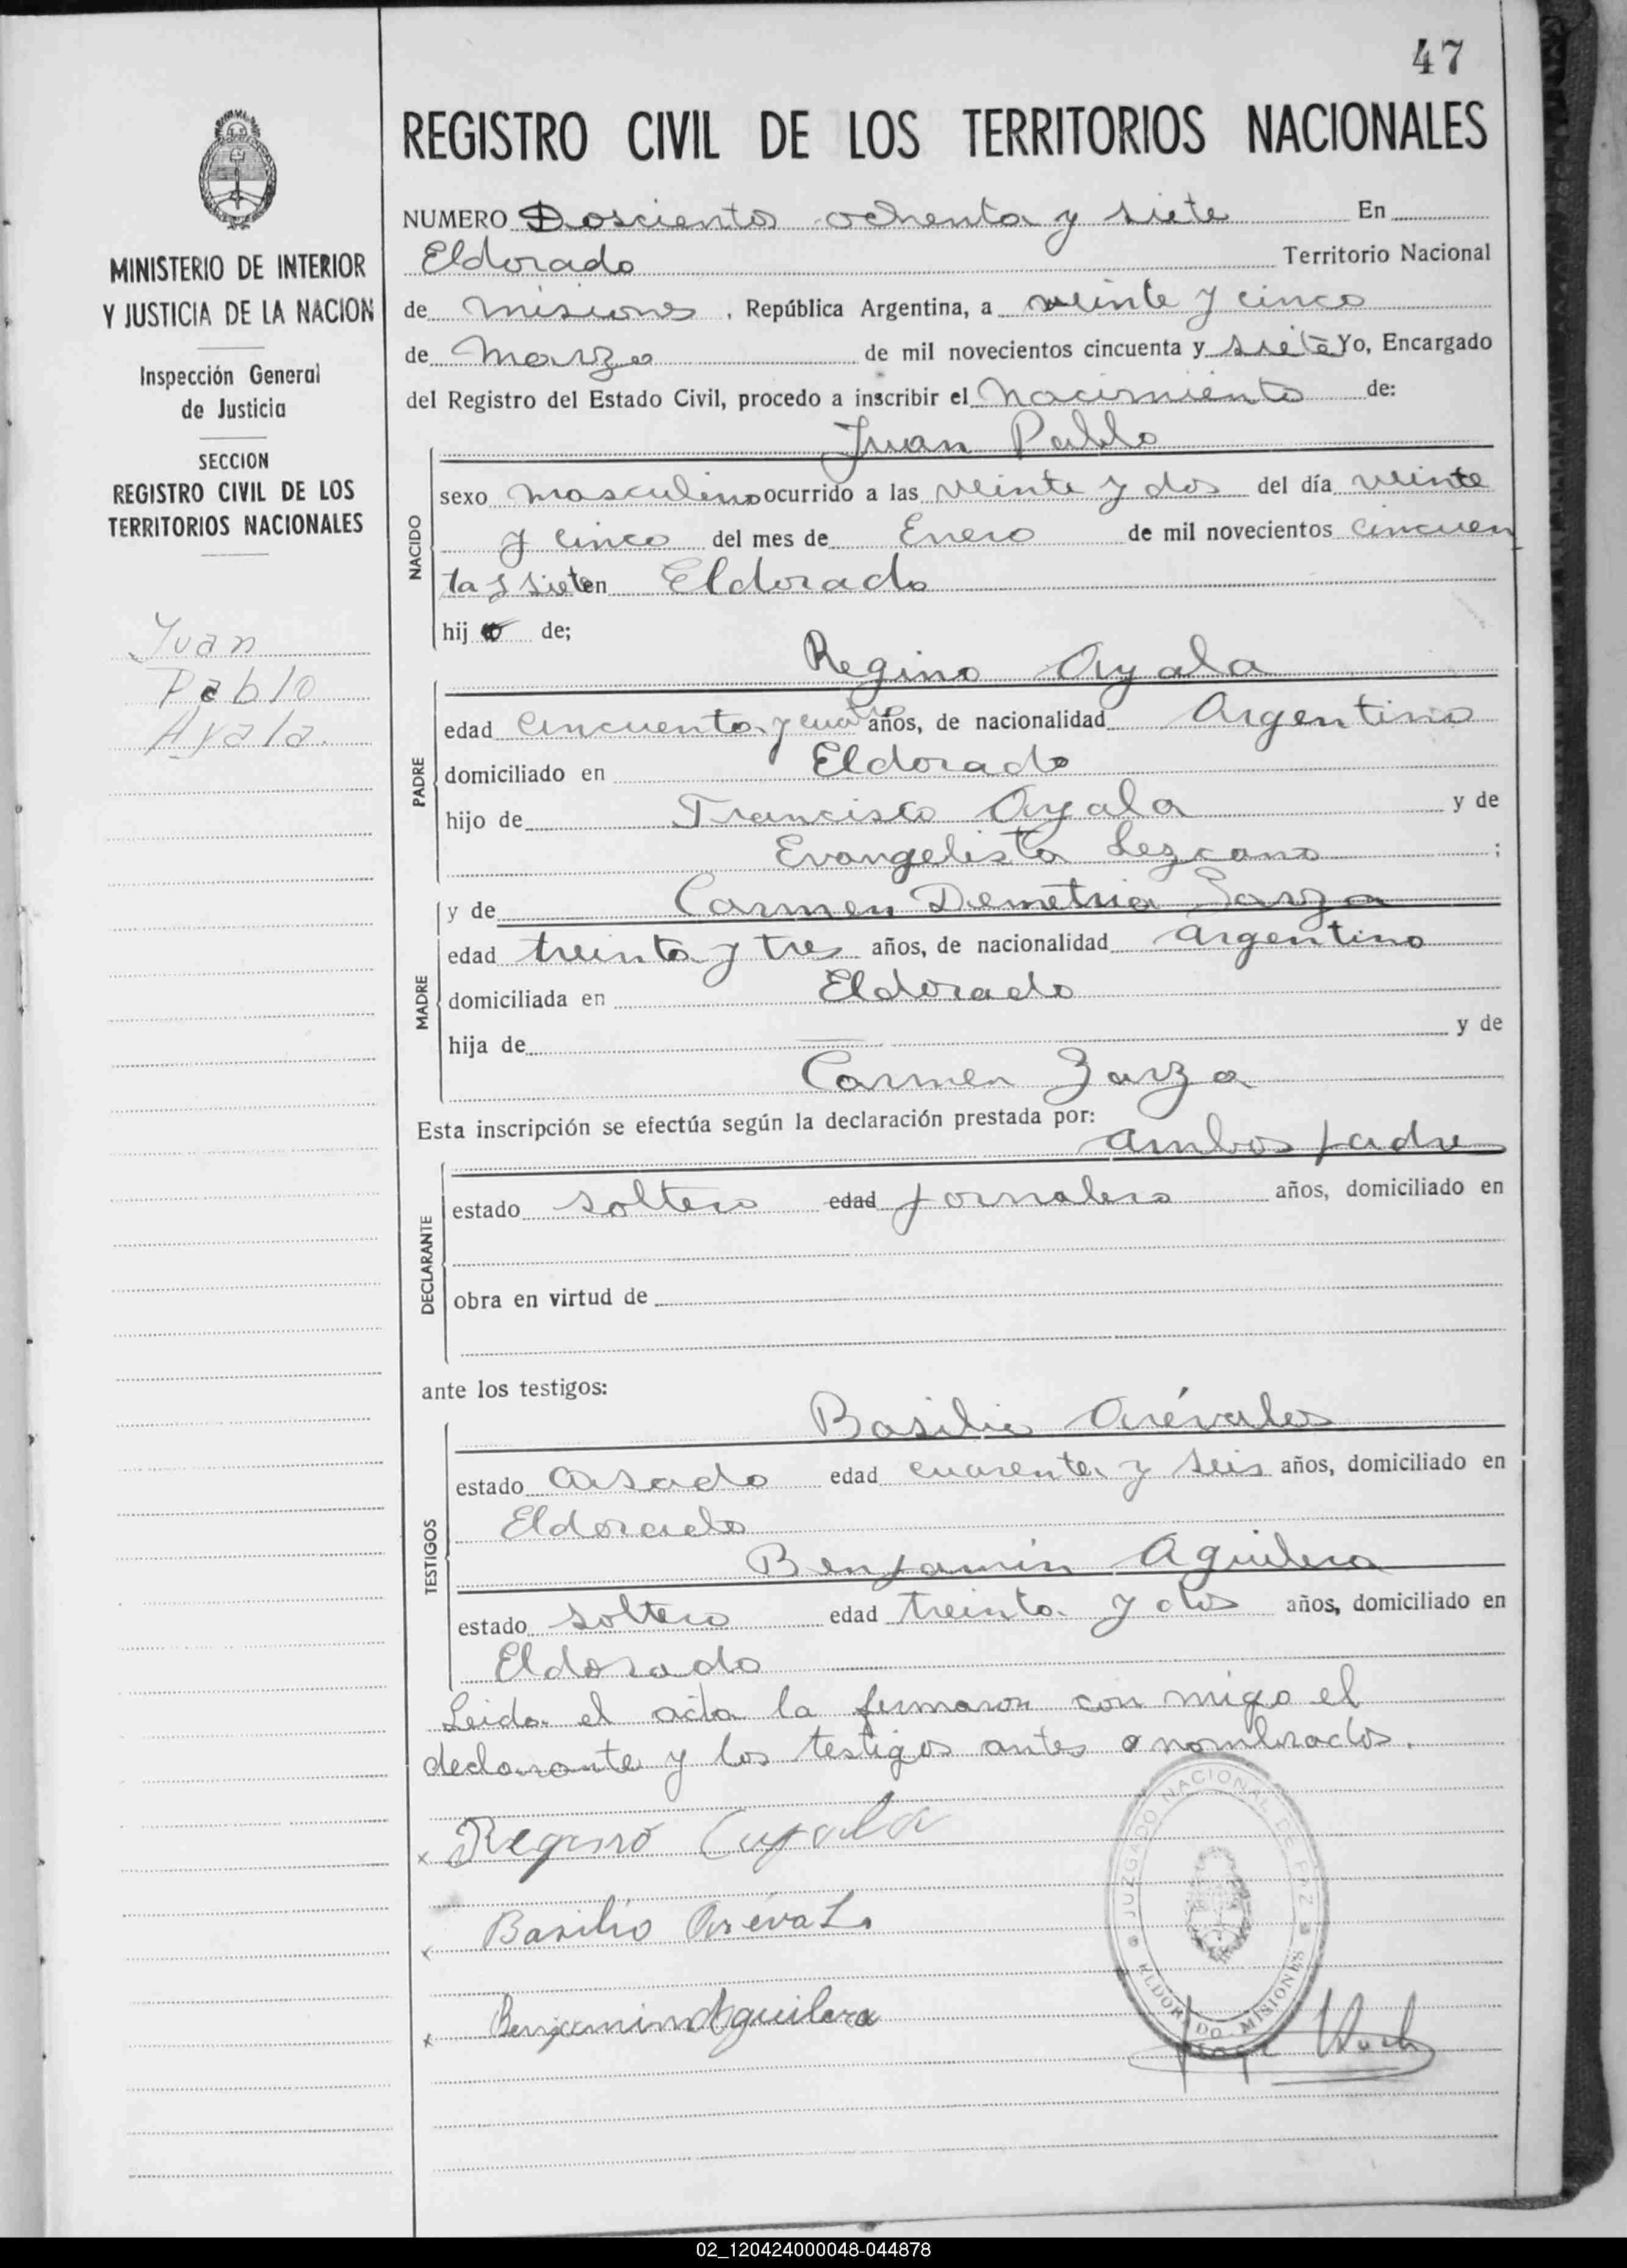 47
REGISTRO CIVIL DE LOS TERRITORIOS NACIONALES
MINISTERIO DE INTERIOR
Y JUSTICIA DE LA NACION
Inspección General
de Justicia
SECCION
REGISTRO CIVIL DE LOS
TERRITORIOS NACIONALES
Juan
Pablo
Ayala.
NUMERO Doscientos ochenta y siete En
Eldorado Territorio Nacional
de Misiones, República Argentina, a veinte y cinco
de Marzo de mil novecientos cincuenta y siete Yo, Encargado
del Registro del Estado Civil, procedo a inscribir el Nacimiento de:
Juan Pablo
NACIDO
sexo masculino ocurrido a las veinte y dos del día veinte
y cinco del mes de Enero de mil novecientos cincuen
ta y siete en Eldorado
hijo de;
Regino Ayala
PADRE
edad cincuenta y cuatro años, de nacionalidad Argentino
domiciliado en Eldorado
hijo de Francisco Ayala y de
Evangelista Lezcano ;
y de Carmen Demetria Zarza
MADRE
edad treinta y tres años, de nacionalidad argentino
domiciliada en Eldorado
hija de y de
Carmen Zarza
Esta inscripción se efectúa según la declaración prestada por:
ambos padre
DECLARANTE
estado soltero edad jornalero años, domiciliado en
obra en virtud de
ante los testigos:
Basilio Arévalos
TESTIGOS
estado casado edad cuarenta y seis años, domiciliado en
Eldorado
Benjamin Aguilera
estado soltero edad treinta y dos años, domiciliado en
Eldorado
Leida el acta la firmaron con migo el
declarante y los testigos antes nombrados.
x Regino Ayala
x Basilio Arévalo
x Benjamin Aguilera
JUZGADO NACIONAL DE PAZ
ELDORADO - MISIONES
02_120424000048-044878